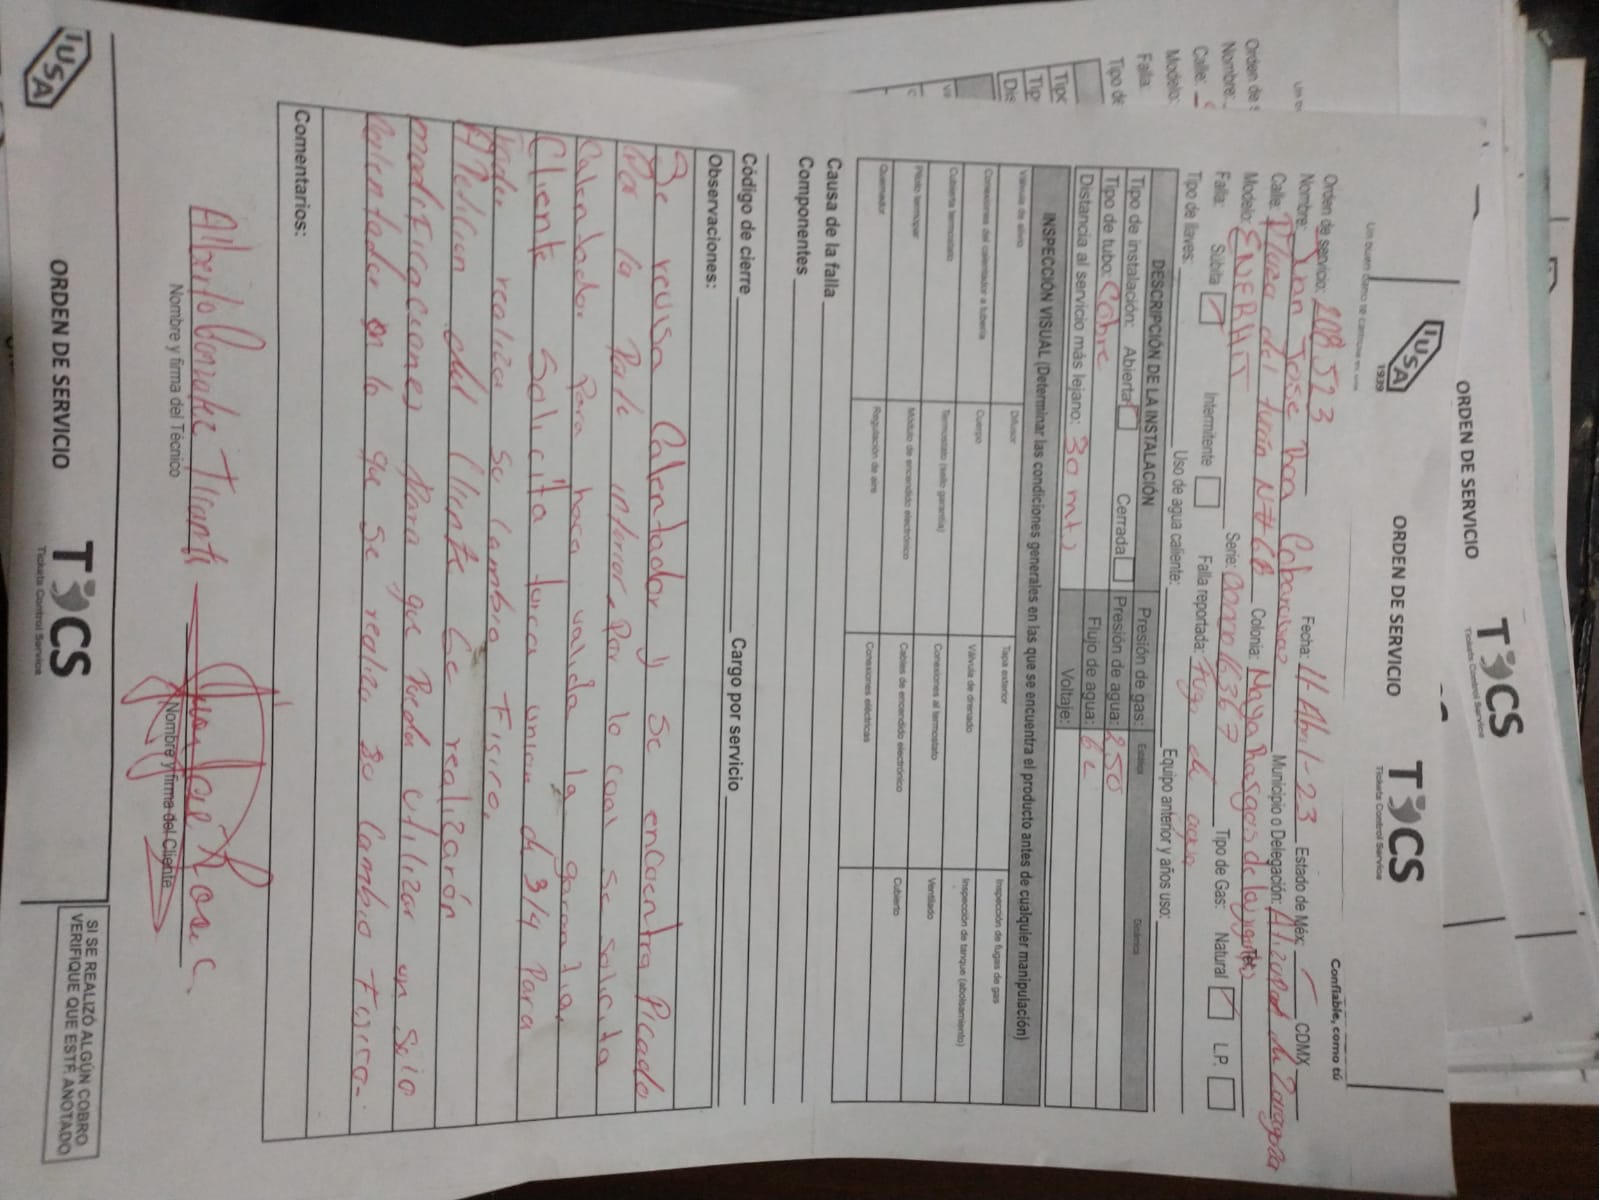 IUSA
1939
ORDEN DE SERVICIO
TCS
Tickets Control Service
Confiable, como tú
Orden de servicio: 208 523 Fecha: 11-Abril-23 Estado de Méx: CDMX
Nombre: Juan Jose Roa
Calle: Plaza del N# 6B Colonia: Nueva Municipio o Delegación: Atizapan de Zaragoza
Modelo: ENERHIT Serie: Tipo de Gas: Natural L.P.
Falla: Súbita Intermitente Falla reportada: Fuga de agua
Tipo de llaves: Uso de agua caliente: Equipo anterior y años uso:
DESCRIPCIÓN DE LA INSTALACIÓN Estática Dinámica
Tipo de instalación: Abierta Cerrada Presión de gas:
Tipo de tubo: Cobre Presión de agua: 250
Distancia al servicio más lejano: 30 mts Flujo de agua: 6 L
Voltaje:
INSPECCIÓN VISUAL (Determinar las condiciones generales en las que se encuentra el producto antes de cualquier manipulación)
Válvula de alivio Difusor Tapa exterior Inspección de fugas de gas
Conexiones del calentador a tubería Cuerpo Válvula de drenado Inspección de tanque (abolsamiento)
Cubierta termostato Termostato (sello garantía) Conexiones al termostato Ventilado
Piloto termopar Módulo de encendido electrónico Cables de encendido electrónico Cubierto
Quemador Regulación de aire Conexiones eléctricas
Causa de la falla
Componentes
Código de cierre Cargo por servicio
Observaciones:
Se revisa Calentador y se encuentra Picado
Por la Parte inferior, Por lo cual se solicita
Calentador Para hacer valida la garantia,
Cliente Solicita tuerca union de 3/4 Para
Poder realizar su Cambio Fisico,
A Peticion del Cliente Se realizarón
modificaciones Para que Pueda utilizar un solo
Calentador en lo que se realiza su Cambio Fisico.
Comentarios:
Alberto Tirant
Nombre y firma del Técnico
Nombre y firma del Cliente
SI SE REALIZÓ ALGÚN COBRO
VERIFIQUE QUE ESTE ANOTADO
IUSA
ORDEN DE SERVICIO
TCS
Tickets Control Service
ORDEN DE SERVICIO
TCS
Tickets Control Service